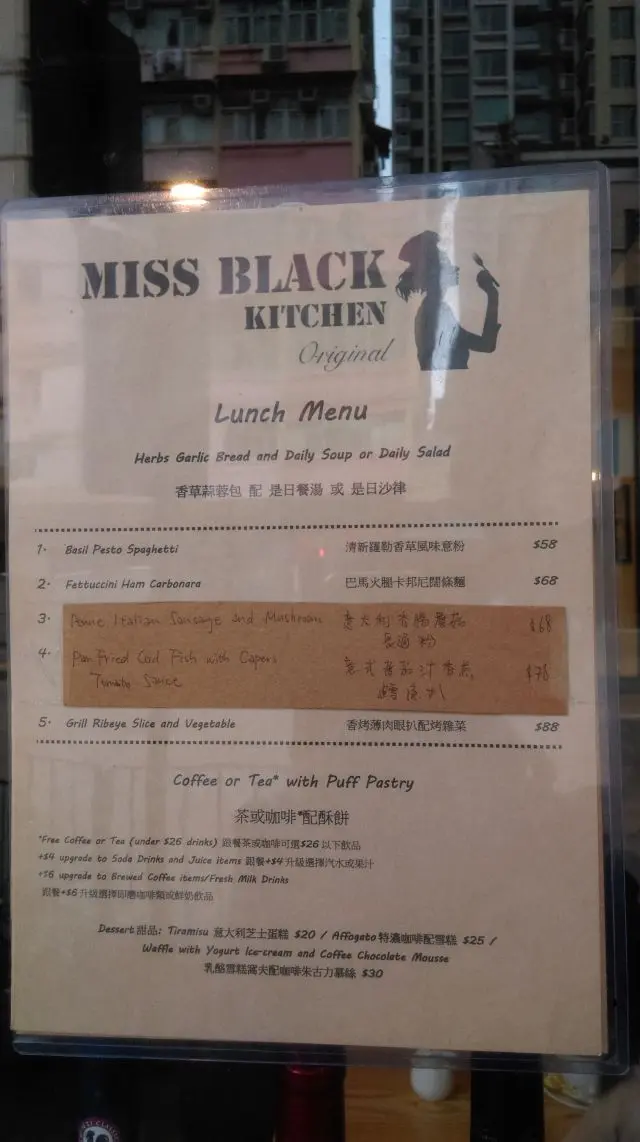 MISS BLACK
KITCHEN
Original
Lunch Menu
Herbs Garlic Bread and Daily Soup or Daily Salad
香草蒜蓉包 配 是日餐湯 或 是日沙律
1. Basil Pesto Spaghetti 清新羅勒香草風味意粉 $58
2. Fettuccini Ham Carbonara 巴馬火腿卡邦尼闊條麵 $68
3. Penne Italian Sausage and Mushroom 意大利香腸蘑菇 $68
長通粉
4. Pan Fried Cod Fish with Capers 意式番茄汁香煎 $78
Tomato Sauce 鱈魚扒
5. Grill Ribeye Slice and Vegetable 香烤薄肉眼扒配烤雜菜 $88
Coffee or Tea* with Puff Pastry
茶或咖啡*配酥餅
*Free Coffee or Tea (under $26 drinks) 跟餐茶或咖啡可選$26以下飲品
+$4 upgrade to Soda Drinks and Juice items 跟餐+$4升級選擇汽水或果汁
+$6 upgrade to Brewed Coffee items/Fresh Milk Drinks
跟餐+$6升級選擇即磨咖啡類或鮮奶飲品
Dessert甜品: Tiramisu 意大利芝士蛋糕 $20 / Affogato特濃咖啡配雪糕 $25 /
Waffle with Yogurt Ice-cream and Coffee Chocolate Mousse
乳酪雪糕窩夫配咖啡朱古力慕絲 $30